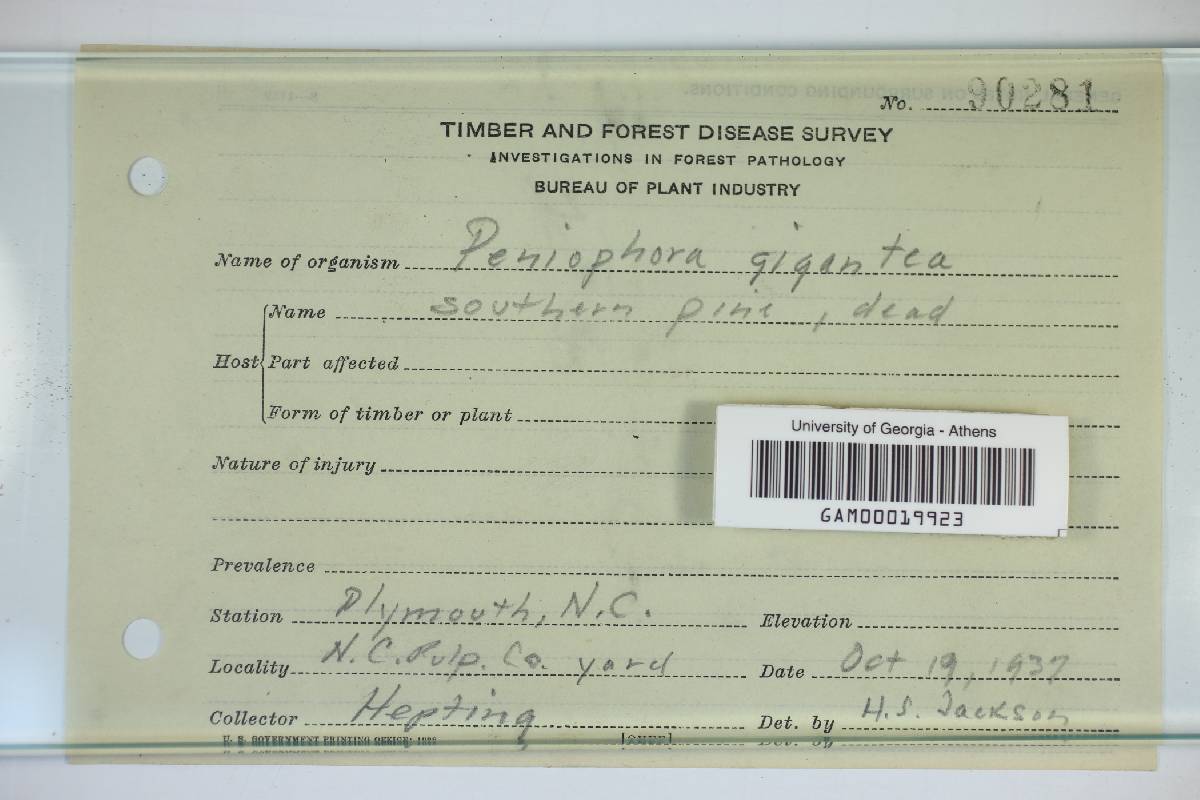 No. 90281
TIMBER AND FOREST DISEASE SURVEY
INVESTIGATIONS IN FOREST PATHOLOGY
BUREAU OF PLANT INDUSTRY
Name of organism Peniophora gigantea
Host
Name southern pine, dead
Part affected
Form of timber or plant
University of Georgia - Athens
GAM00019923
Nature of injury
Prevalence
Station Plymouth, N.C.
Elevation
Locality N.C. Pulp. Co. yard
Date Oct 19, 1937
Collector Hepting
Det. by H.S. Jackson
U. S. GOVERNMENT PRINTING OFFICE:
[OVER]